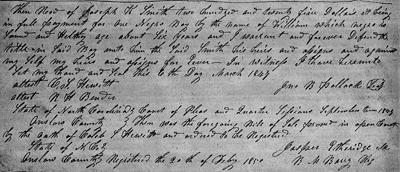 then Rced of Joseph H Smith two hundred and twenty five Dollars it being
in full payment for One Negro Boy by the name of William which negro is
Sound and Healthy age about Six years and I warrant and forever Defend the
title in Said Boy unto him the Said Smith his heirs and assigns and against
my Self my heirs and assigns for Ever In witness I have hereunto
Set my hand and Seal this 6th Day March 1847
attest Col. Hewitt Jno B Pollock
attest
State of North Carolina Court of Pleas and Quarter Sessions September term
Onslow County Then was the foregoing Bill of Sale proved in open Court
by the oath of Caleb Hewitt and ordered to be Registered
State of N.C. Jasper Etheridge
Onslow County Registered the 20th of Feby 1850